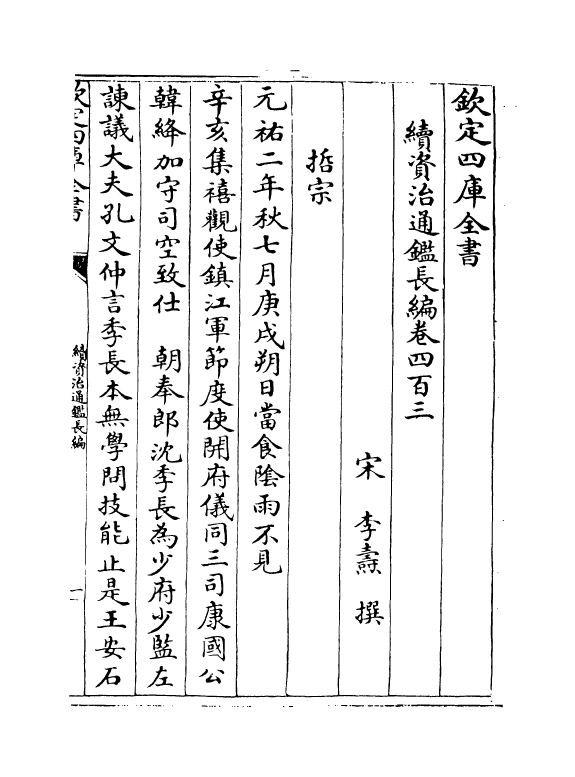 欽定四庫全書
續資治通鑑長編卷四百三
宋 李燾 撰
哲宗
元祐二年秋七月庚戌朔日當食陰雨不見
辛亥集禧觀使鎮江軍節度使開府儀同三司康國公
韓絳加守司空致仕 朝奉郎沈季長為少府少監左
諫議大夫孔文仲言季長本無學問技能止是王安石
欽定四庫全書
續資治通鑑長編
一